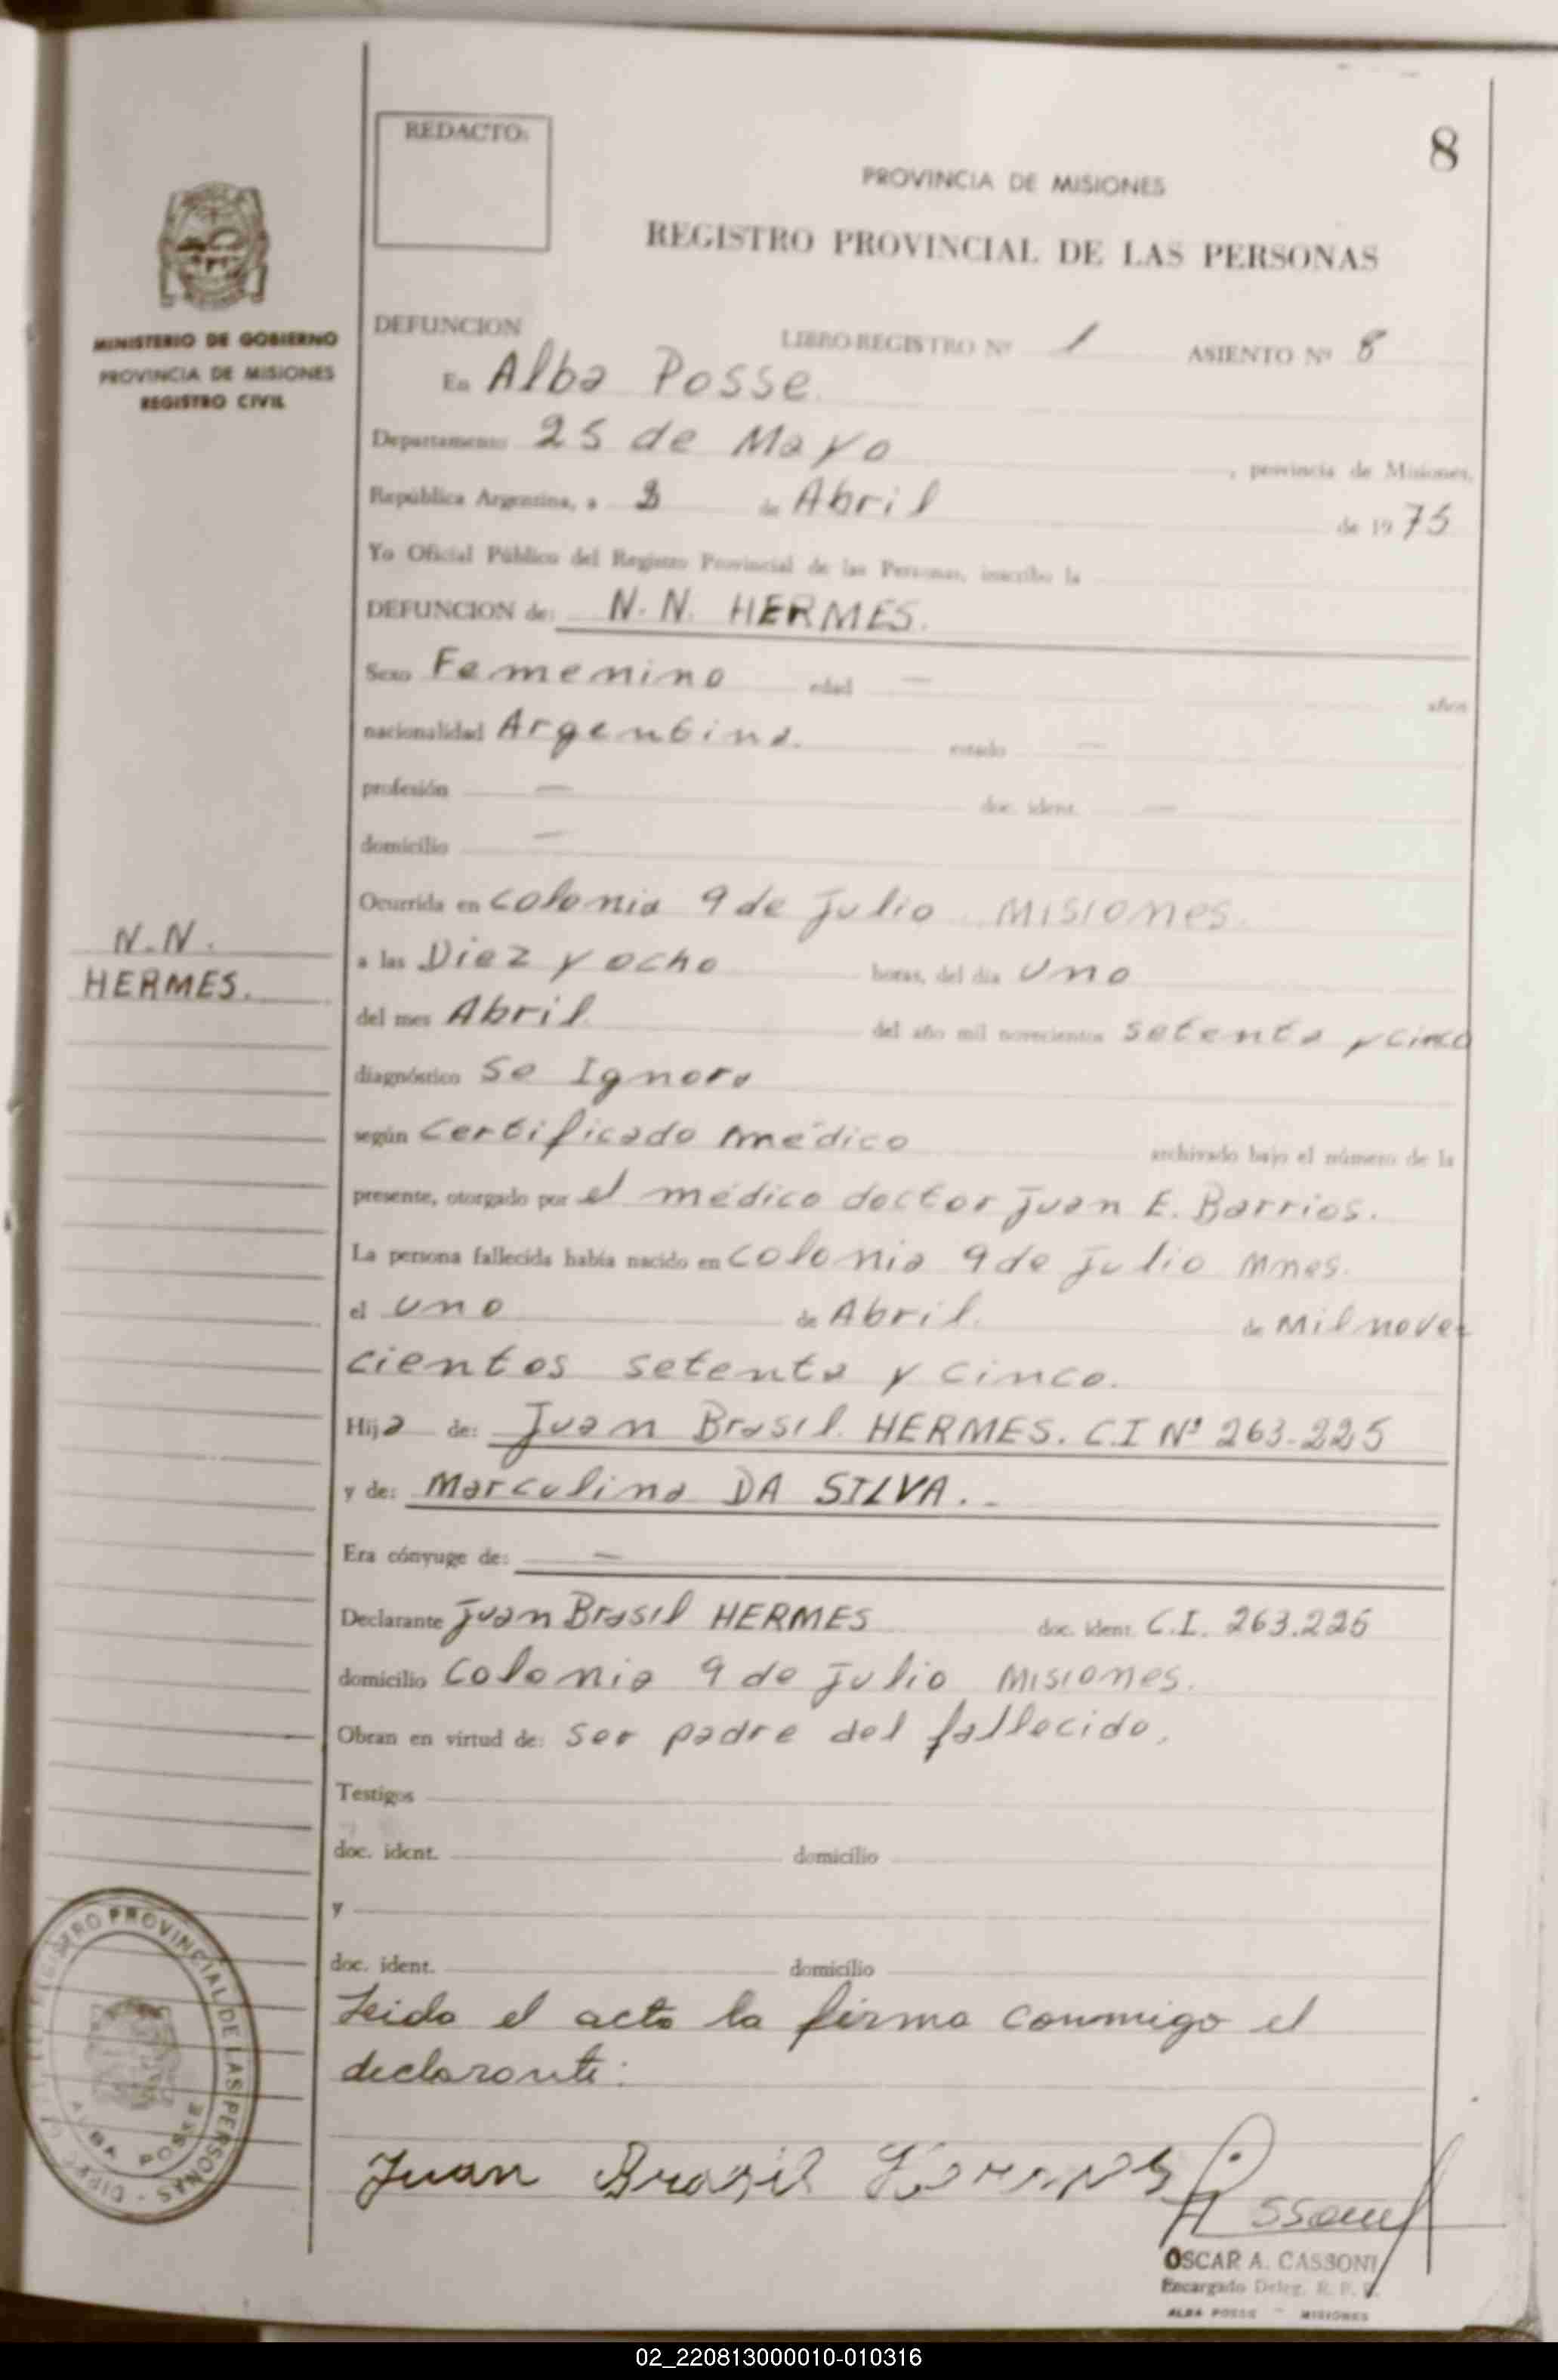 8
REDACTO:
PROVINCIA DE MISIONES
REGISTRO PROVINCIAL DE LAS PERSONAS
MINISTERIO DE GOBIERNO
PROVINCIA DE MISIONES
REGISTRO CIVIL
DEFUNCION LIBRO-REGISTRO Nº 1 ASIENTO Nº 8
En Alba Posse.
Departamento 25 de Mayo , provincia de Misiones,
República Argentina, a de Abril de 1975
Yo Oficial Público del Registro Provincial de las Personas, inscribo la
DEFUNCION de: N.N. HERMES.
Sexo Femenino edad — años
nacionalidad Argentina. estado —
profesión — doc. ident. —
domicilio —
Ocurrida en colonia 9 de Julio MISIONES.
N.N.
HERMES.
a las Diez y ocho horas, del día uno
del mes Abril del año mil novecientos setenta y cinco
diagnóstico Se Ignora
según Certificado médico archivado bajo el número de la
presente, otorgado por el médico doctor Juan E. Barrios.
La persona fallecida había nacido en Colonia 9 de Julio Mnes.
el uno de Abril. de Mil nove
cientos setenta y cinco.
Hija de: Juan Brasil HERMES. C.I Nº 263-225
y de: Marculina DA SILVA.-
Era cónyuge de: —
Declarante Juan Brasil HERMES doc. ident. C.I. 263.225
domicilio Colonia 9 de Julio MISIONES.
Obran en virtud de: Ser padre del fallecido.
Testigos
doc. ident. domicilio
y
doc. ident. domicilio
Leida el acta la firma conmigo el
declarante:
REGISTRO PROVINCIAL DE LAS PERSONAS
ALBA POSSE
Juan Brasil Hermes
OSCAR A. CASSONI
Encargado Deleg. R. P.
ALBA POSSE - MISIONES
02_220813000010-010316